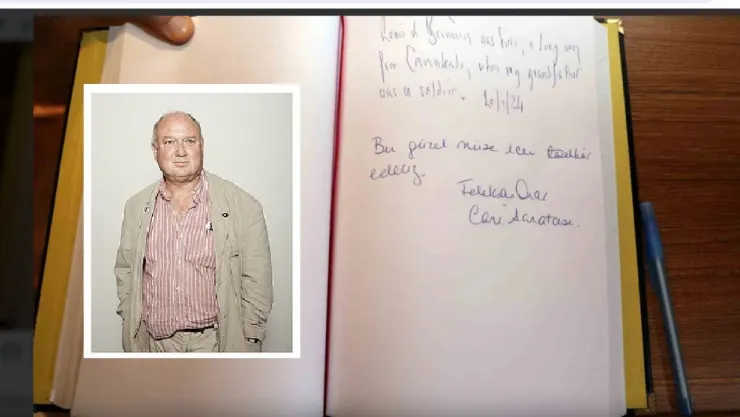 Louis de Bernières was here, a long way
from Canakkale, where my grandfather
was a soldier. 20/1/24
Bu güzel müze icin teşekkür
ederiz.
Felekşan Onar
Cam Sanatçısı.